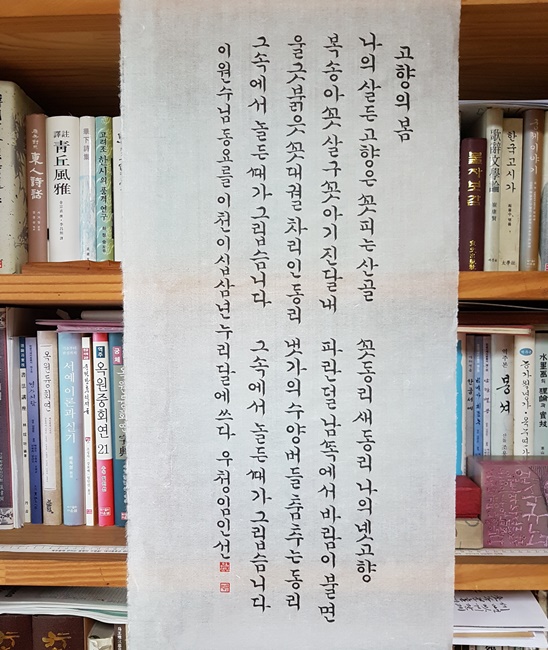 고향의 봄
나의 살든 고향은 꼿피는 산골
복송아꼿 살구꼿 아기 진달내
울긋붉읏 꼿대궐 차리인 동리
그속에서 놀든때가 그립슴니다
꼿동리 새동리 나의 녯고향
파란덜 남쪽에서 바람이 불면
냇가의 수양버들 춤추는 동리
그속에서 놀든때가 그립슴니다
이원수님 동요를 이천이십삼년 누리달에 쓰다 우청 임인선
東人詩話
譯註 靑丘風雅
고려조 한시의 품격 연구
불자보감
歌辭文學論
한국고시가
이야기
옥원듕회연
서예 이론과 실기
옥원중회연 21
水墨畵의 理論과 實技